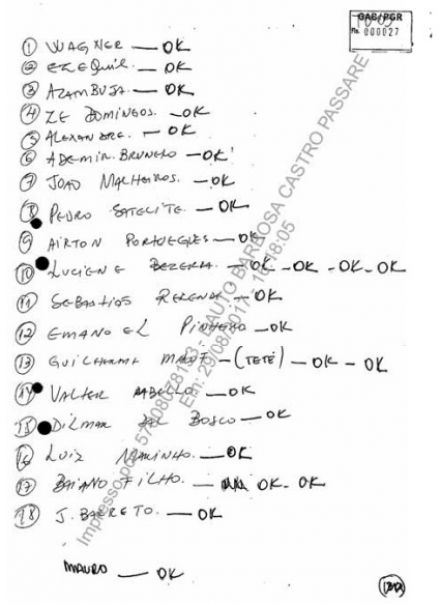 GAB/PGR
Fls. 000027
1 WAGNER — OK
2 EZEQUIEL — OK
3 AZAMBUJA — OK
4 ZE DOMINGOS. — OK
5 ALEXANDRE. — OK
6 ADEMIR. BRUNETO — OK
7 JOAO MALHEIROS. — OK
8 PEDRO SATELITE. — OK
9 AIRTON PORTUGUES — OK
10 LUCIENE BEZERRA. — OK - OK - OK - OK
11 SEBASTIAO REZENDE — OK
12 EMANOEL PINHEIRO — OK
13 GUILHERME MALUF — (TETÉ) — OK - OK
14 VALTER RABELLO — OK
15 DILMAR DAL BOSCO — OK
16 LUIZ MARINHO. — OK
17 BAIANO FILHO. — OK. OK
18 J. BARRETO. — OK
MAURO — OK
Em: 29/08/2017
BARBOSA CASTRO PASSARE
Impresso por: